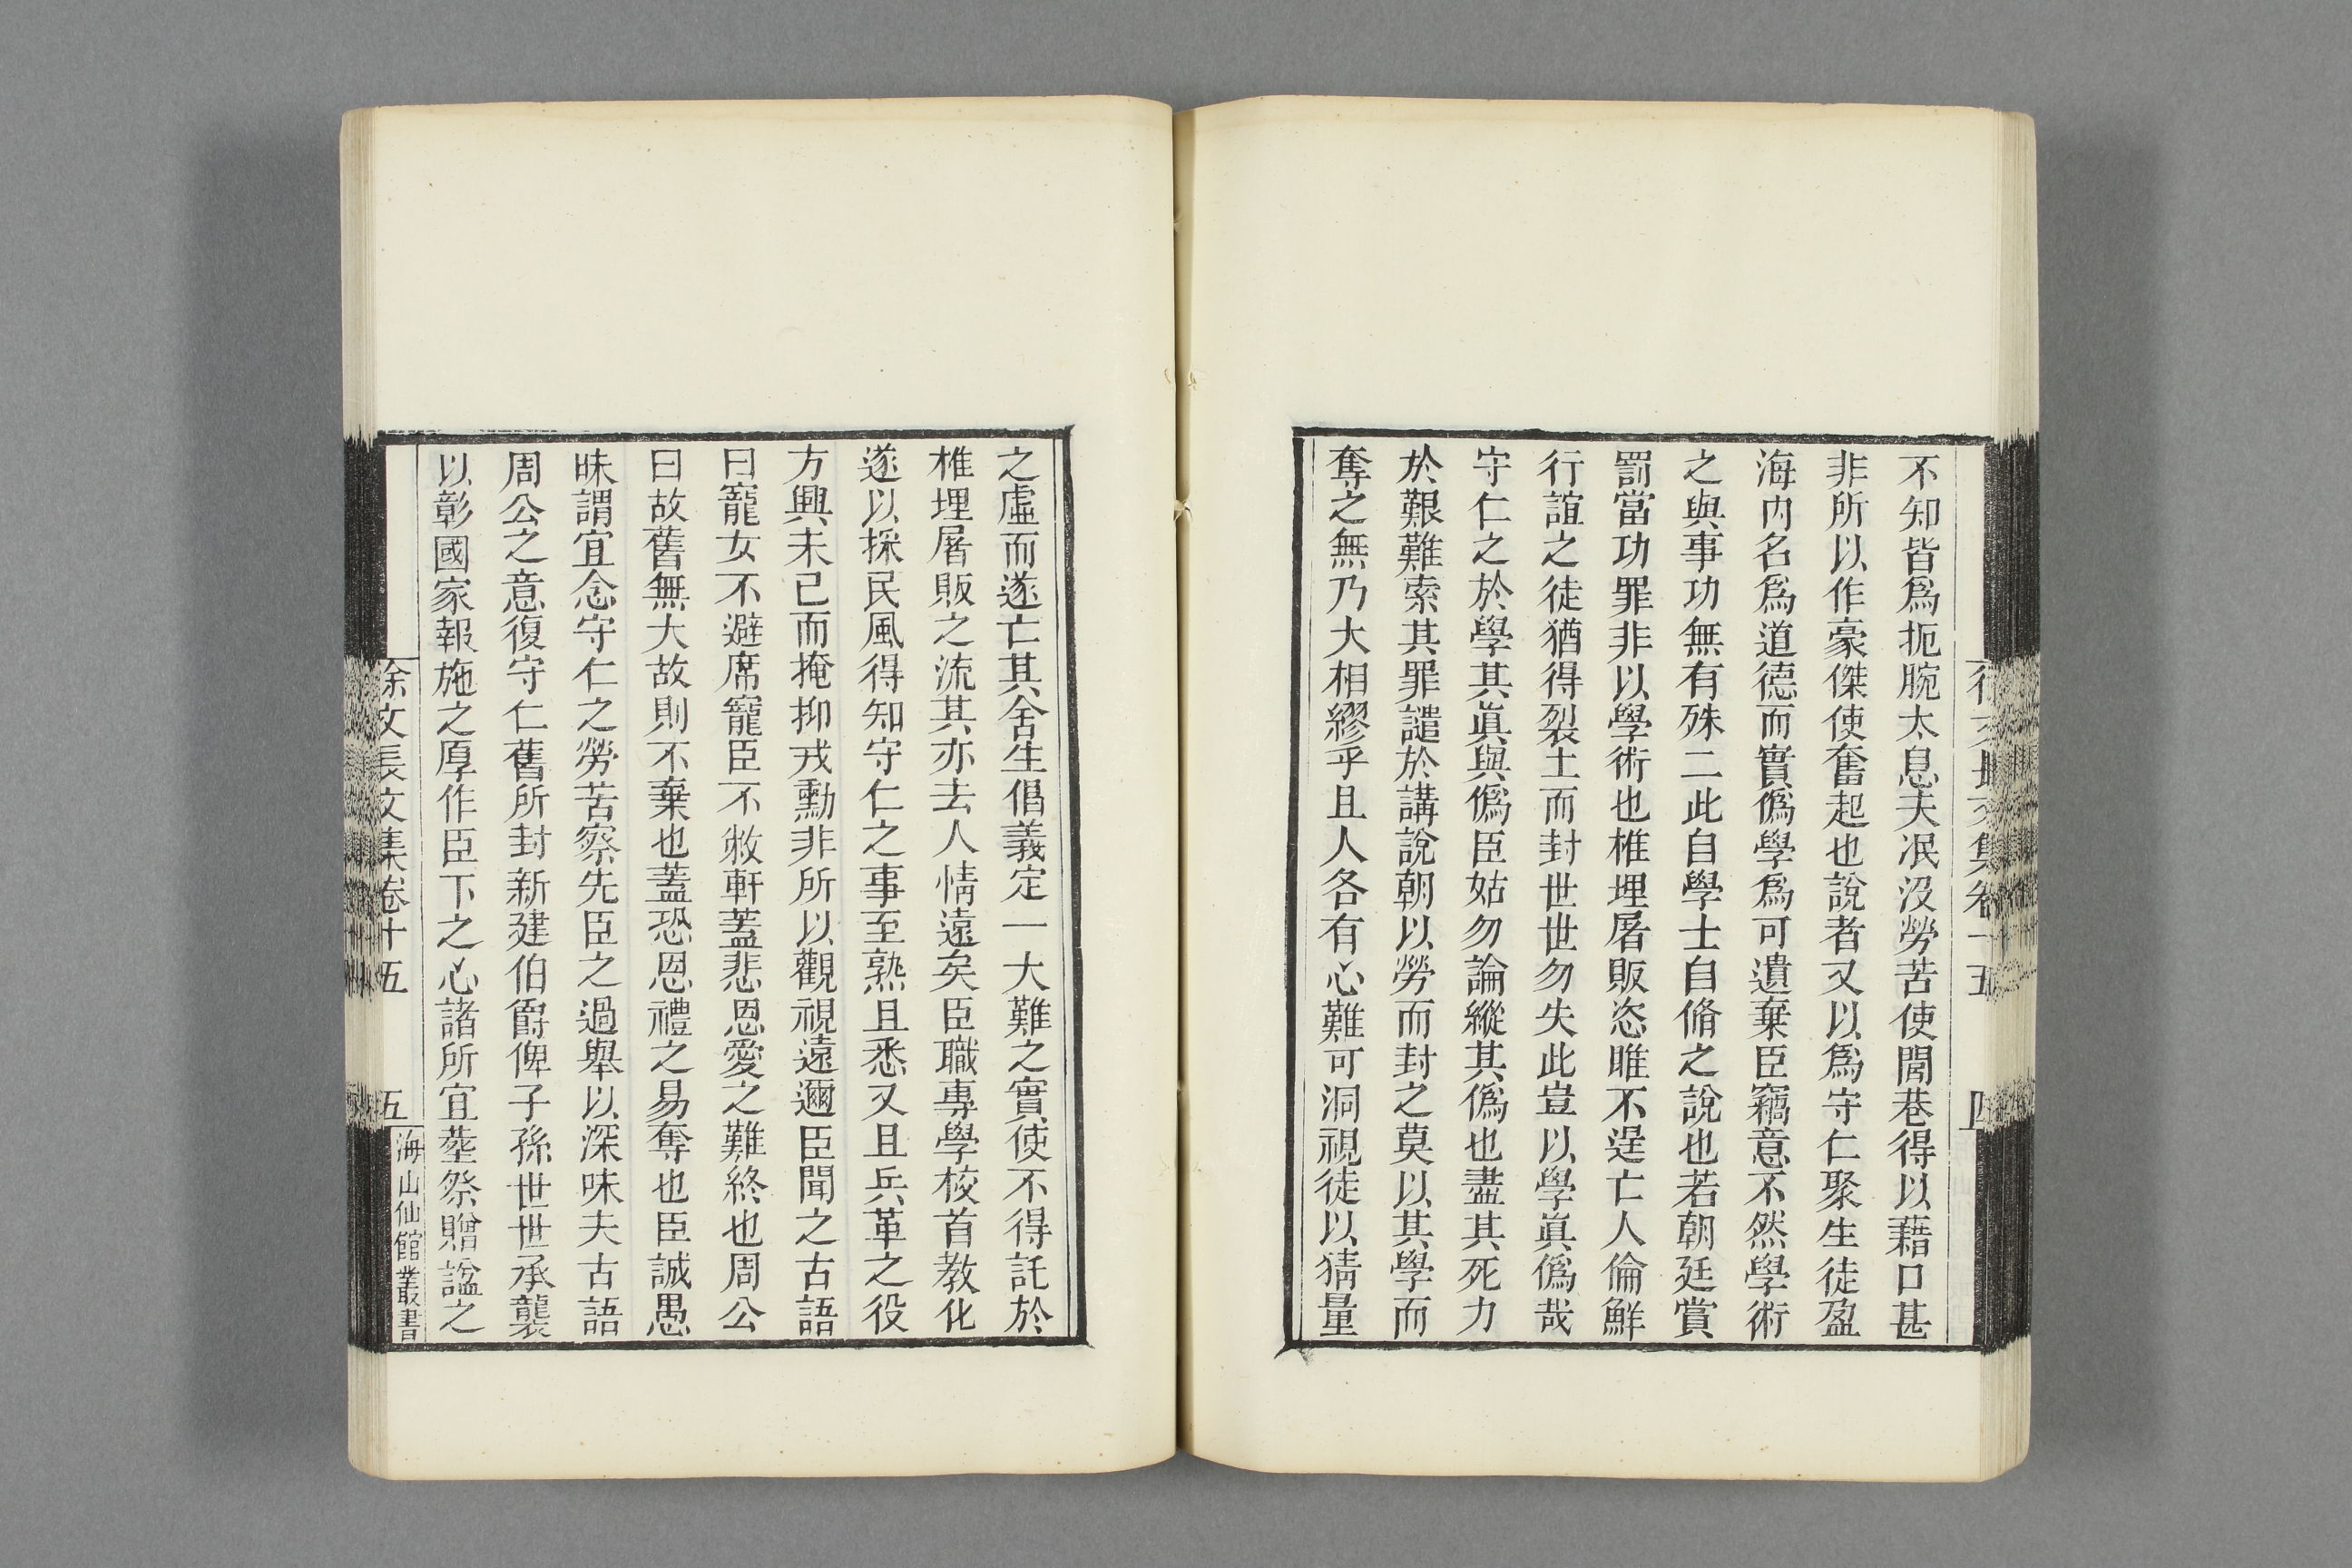 不知皆爲扼腕太息夫泯沒勞苦使閭巷得以藉口甚
非所以作豪傑使奮起也說者又以爲守仁聚生徒盈
海內名爲道德而實僞學爲可遺棄臣竊意不然學術
之與事功無有殊二此自學士自脩之說也若朝廷賞
罰當功罪非以學術也椎埋屠販恣睢不逞亡人倫鮮
行誼之徒猶得裂土而封世世勿失此豈以學眞僞哉
守仁之於學其眞與僞臣姑勿論縱其僞也盡其死力
於艱難索其罪譴於講說朝以勞而封之莫以其學而
奪之無乃大相繆乎且人各有心難可洞視徒以猜量
之虛而遂亡其舍生倡義定一大難之實使不得託於
椎埋屠販之流其亦去人情遠矣臣職專學校首教化
遂以採民風得知守仁之事至熟且悉又且兵革之役
方興未已而掩抑戎勳非所以觀視遠邇臣聞之古語
曰寵女不避席寵臣不敝軒蓋悲恩愛之難終也周公
曰故舊無大故則不棄也蓋恐恩禮之易奪也臣誠愚
昧謂宜念守仁之勞苦察先臣之過舉以深味夫古語
周公之意復守仁舊所封新建伯爵俾子孫世世承襲
以彰國家報施之厚作臣下之心諸所宜塟祭贈諡之
徐文長文集卷十五
五
海山仙館叢書